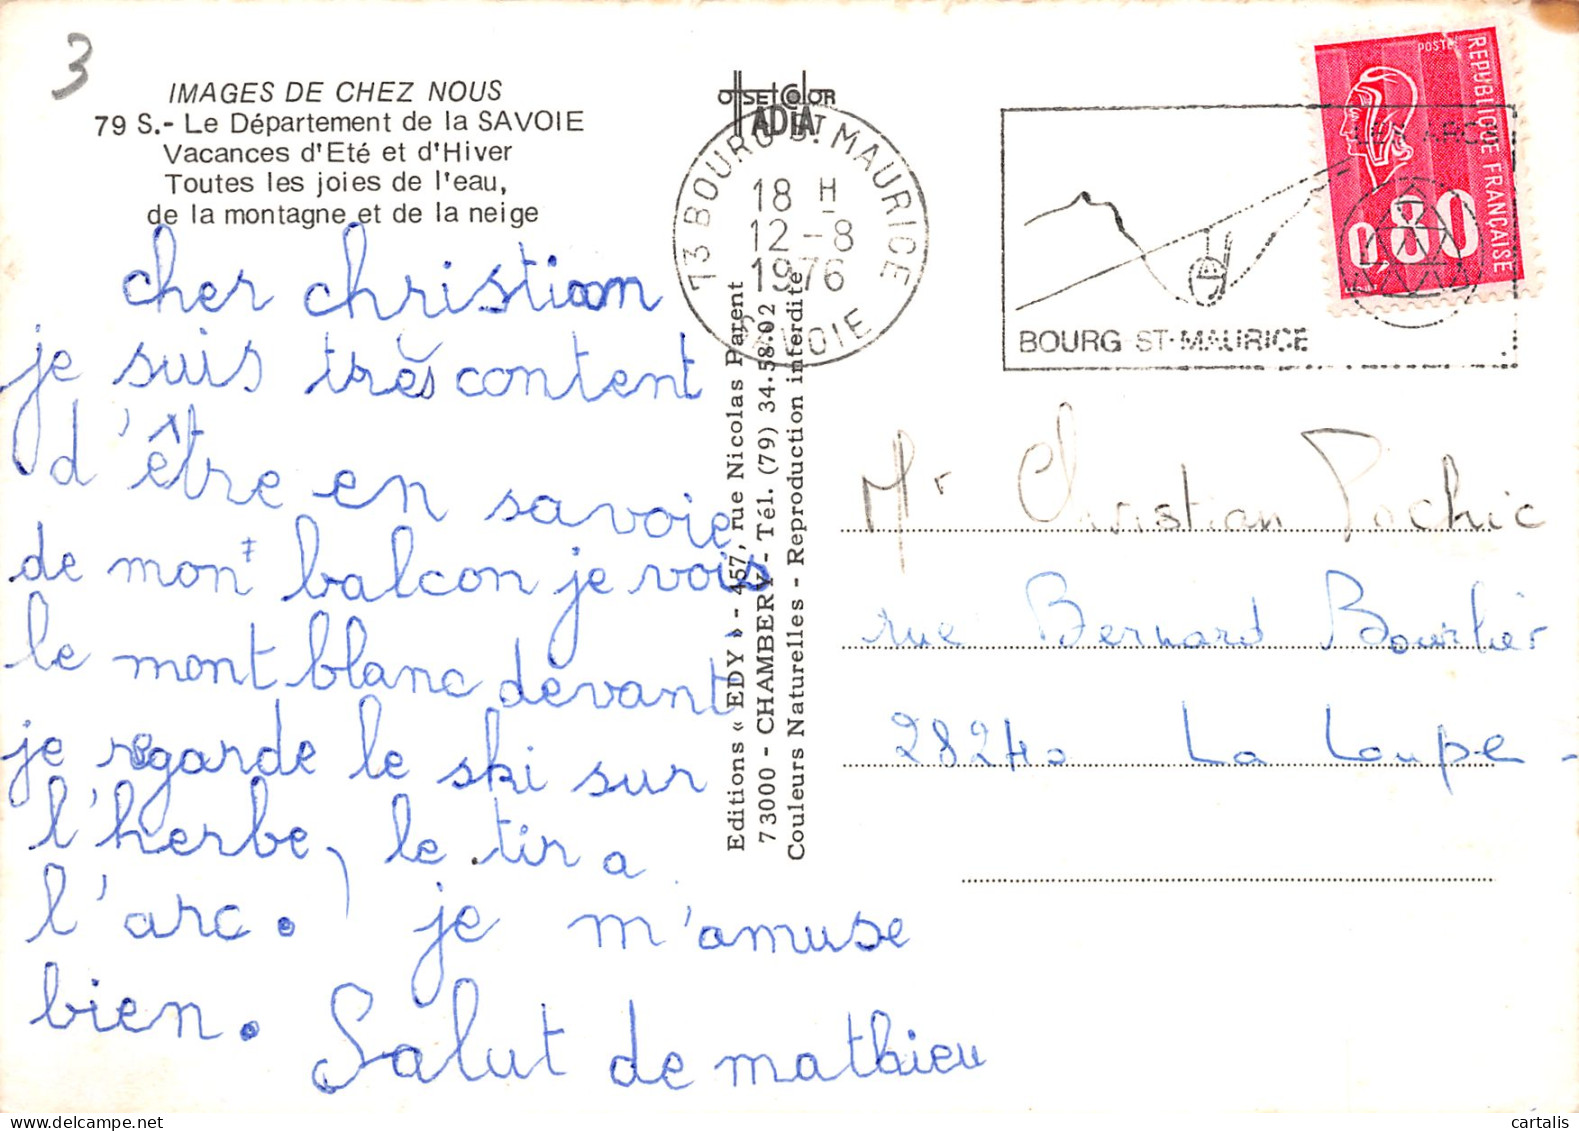 3
IMAGES DE CHEZ NOUS
79 S.- Le Département de la SAVOIE
Vacances d'Eté et d'Hiver
Toutes les joies de l'eau,
de la montagne et de la neige
cher christian
je suis très content
d'être en savoie
de mon balcon je vois
le mont blanc devant
je regarde le ski sur
l'herbe, le tir a
l'arc. je m'amuse
bien.
Salut de mathieu
offset color
ADIA
Editions « EDY » - 457, rue Nicolas Parent
73000 - CHAMBERY - Tél. (79) 34.58.02
Couleurs Naturelles - Reproduction interdite
73 BOURG ST MAURICE
18 H
12-8
1976
SAVOIE
LES ARCS
BOURG-ST-MAURICE
POSTES
REPUBLIQUE FRANÇAISE
0,80
Mr Christian Pochic
rue Bernard Bourlier
28240 La Loupe -
cartalis